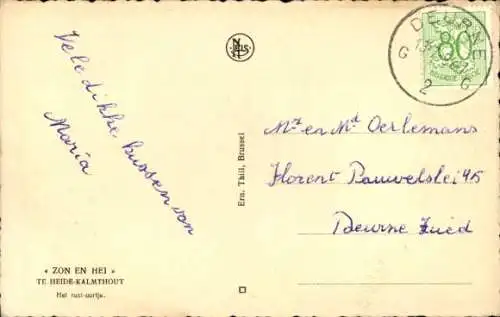 Vele dikke kussen van
Maria
NELS
DEURNE
G G
2
80
BELGIE
Mr en Md Oerlemans
Florent Pauwelslei 45
Deurne Zuied
Ern. Thill, Brussel
« ZON EN HEI »
TE HEIDE-KALMTHOUT
Het rust-uurtje.